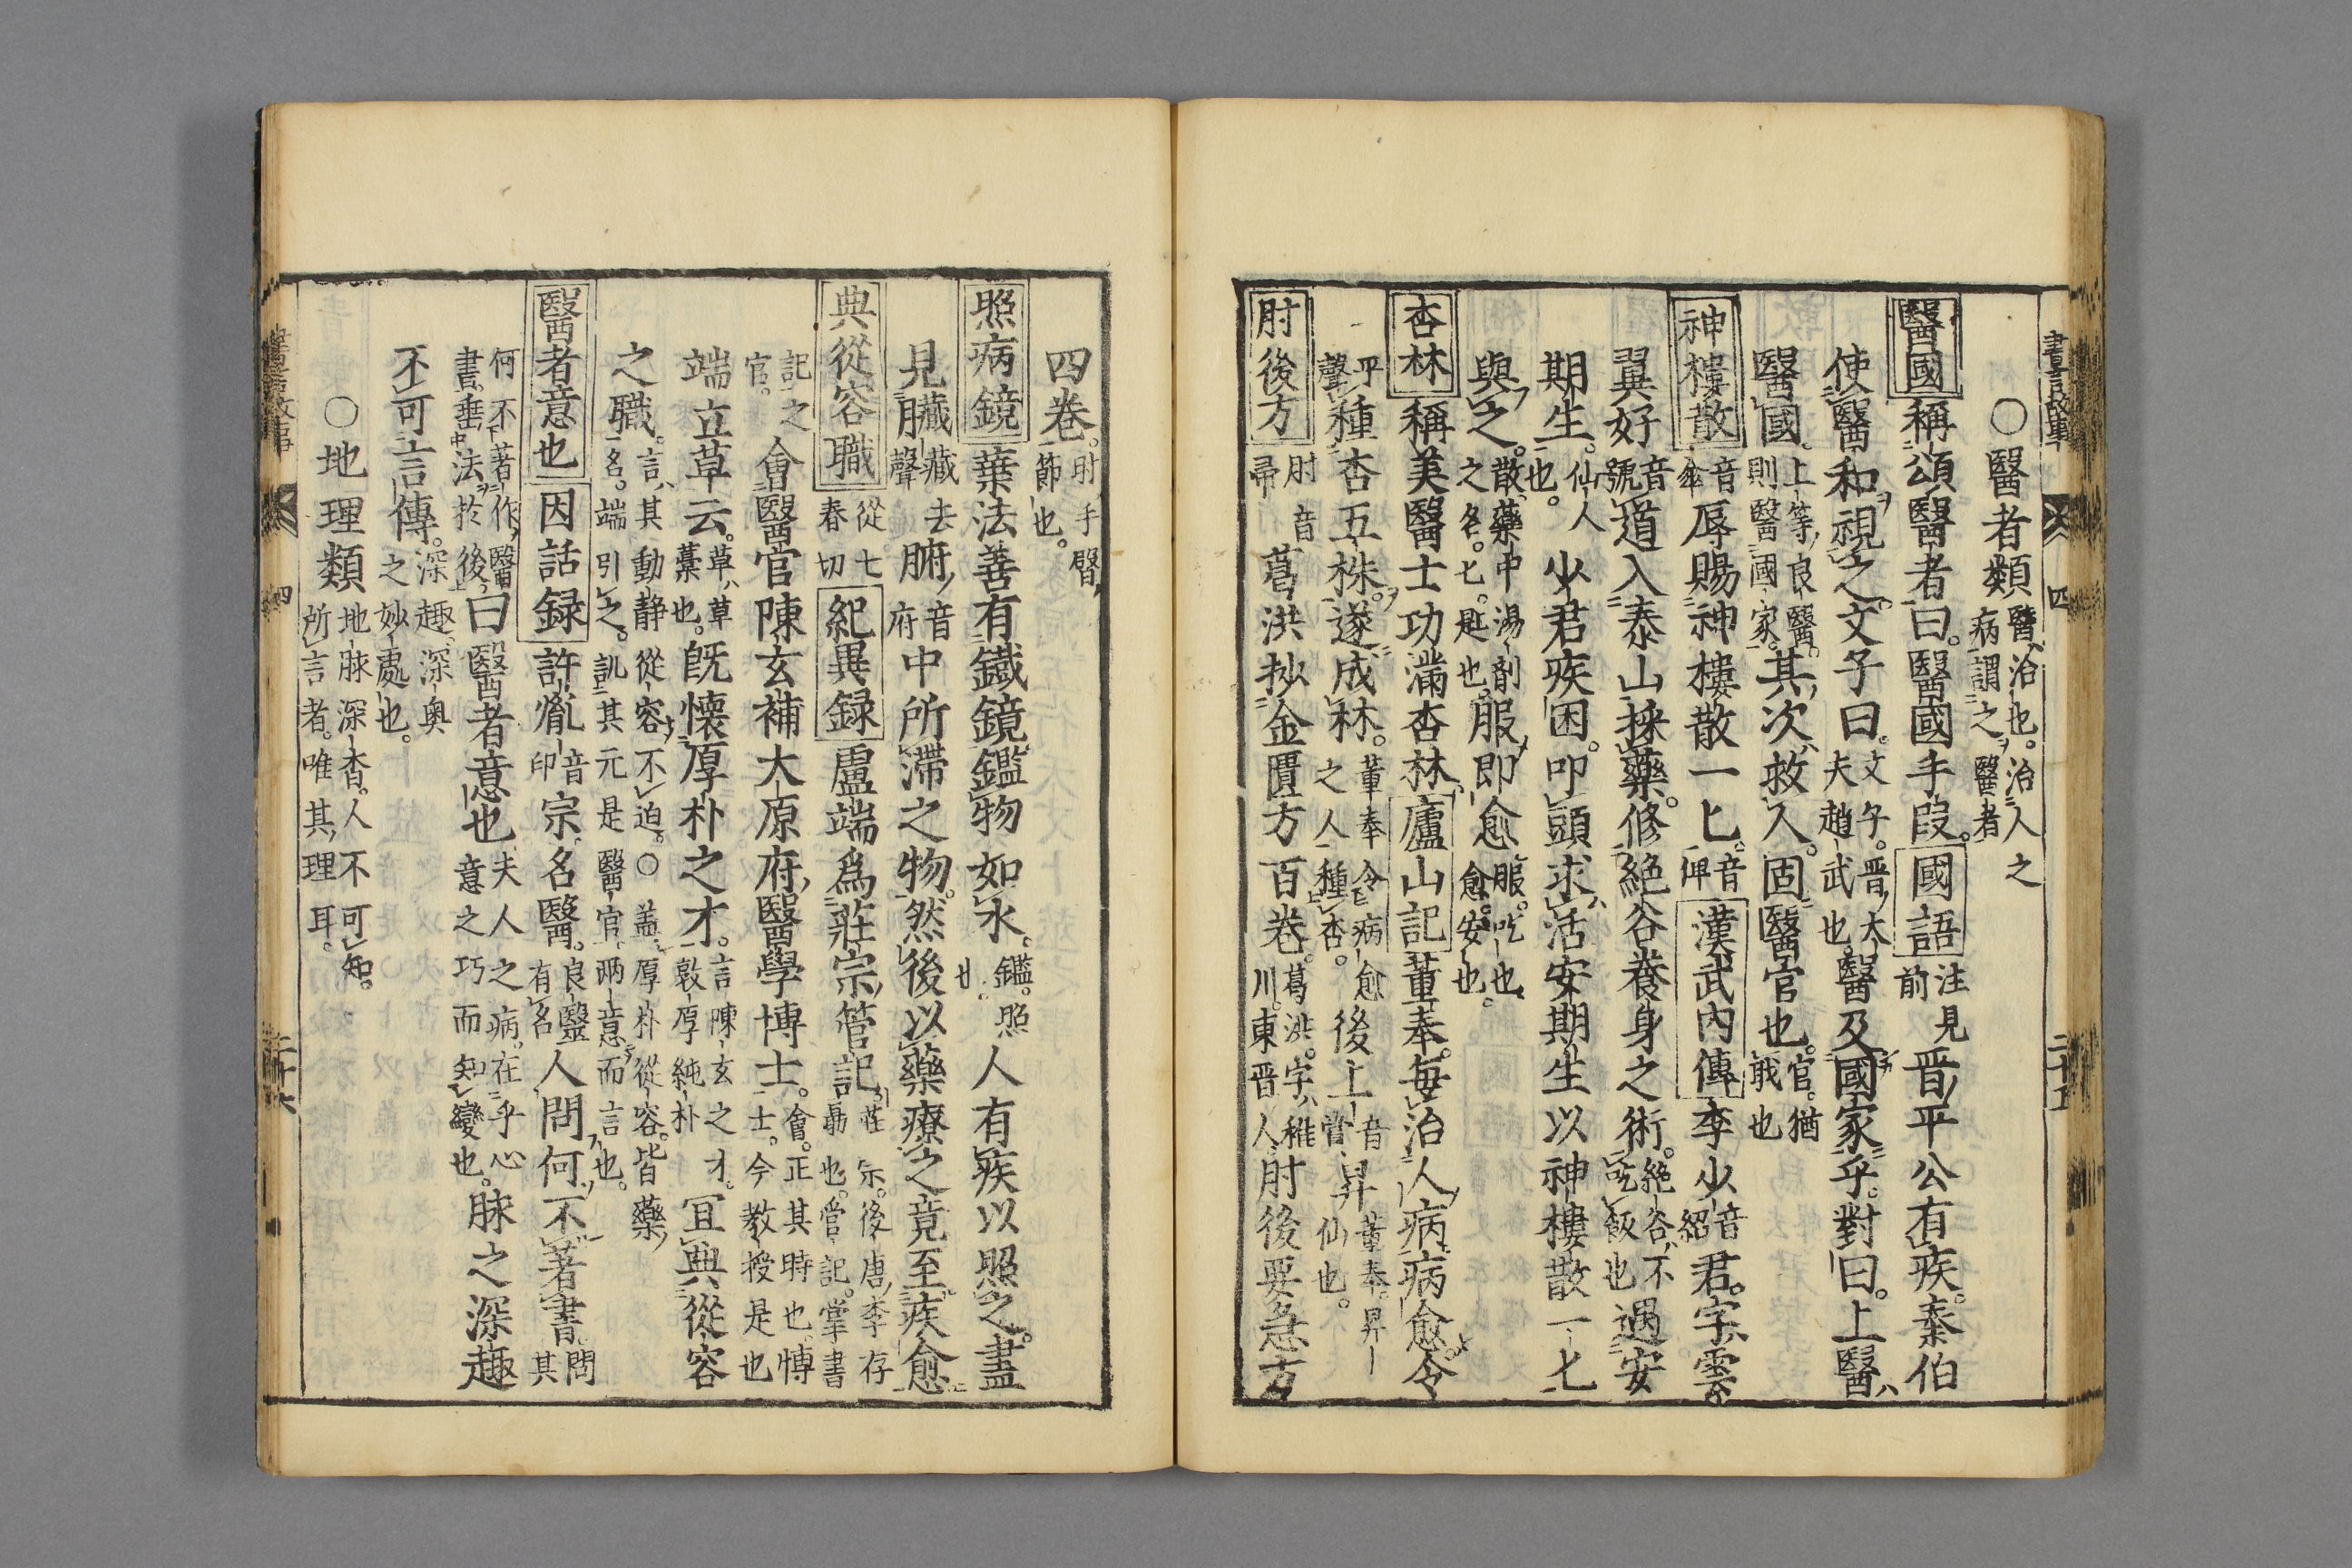 書言故事 四 二十五
○醫者類 醫治也治人之病謂之醫者
醫國 稱頌醫者曰醫國手段 國語 注見前 晋平公有疾秦伯
使醫和視之文子曰 文子晋大夫趙武也 醫及國家乎對曰上醫
醫國 上等良醫則醫國家 其次救人固醫官也 官猶職也
神樓散 音傘 辱賜神樓散一匕 音 漢武內傳 李少 音紹 君字雲
翼好 音號 道入泰山採藥修絕谷養身之術 絕谷不吃飯也 遇安
期生 仙人也 少君疾困叩頭求活安期生以神樓散一匕
與之 散藥中湯劑之名匕匙也 服即愈 服吃也愈安也
杏林 稱美醫士功滿杏林 廬山記 董奉每治人病病愈令
平聲 種杏五株遂成林 董奉令病愈之人種杏 後上 音賞 昇 董奉昇仙也
肘後方 肘音帚 葛洪抄金匱方百卷 葛洪字稚川東晋人 肘後要急方
四卷 肘手臂節也
照病鏡 葉法善有鐵鏡鑑物如水 鑑照也 人有疾以照之盡
見臟 藏去聲 腑 音府 中所滯之物然後以藥療之竟至疾愈
典從容職 從七春切 紀異録 盧端爲莊宗管記 莊宗後唐李存勗也管記掌書
記之官 會醫官陳玄補大原府醫學博士 會正其時也博士今教授是也
端立草云 草草藁也 旣懷厚朴之才 言陳玄之才敦厚純朴 冝典從容
之職 言其動靜從容不迫○盖厚朴從容皆藥名端引之訕其元是醫官兩意而言也
醫者意也 因話録 許胤 音印 宗名醫 良醫有名 人問何不著書 問其
何不著作醫書垂法於後 曰醫者意也 夫人之病在乎心意之巧而知變也 脉之深趣
不可言傳 深趣深奥之妙處也
○地理類 地脉深杳人不可知所言者唯其理耳
書言故事 四 二十六